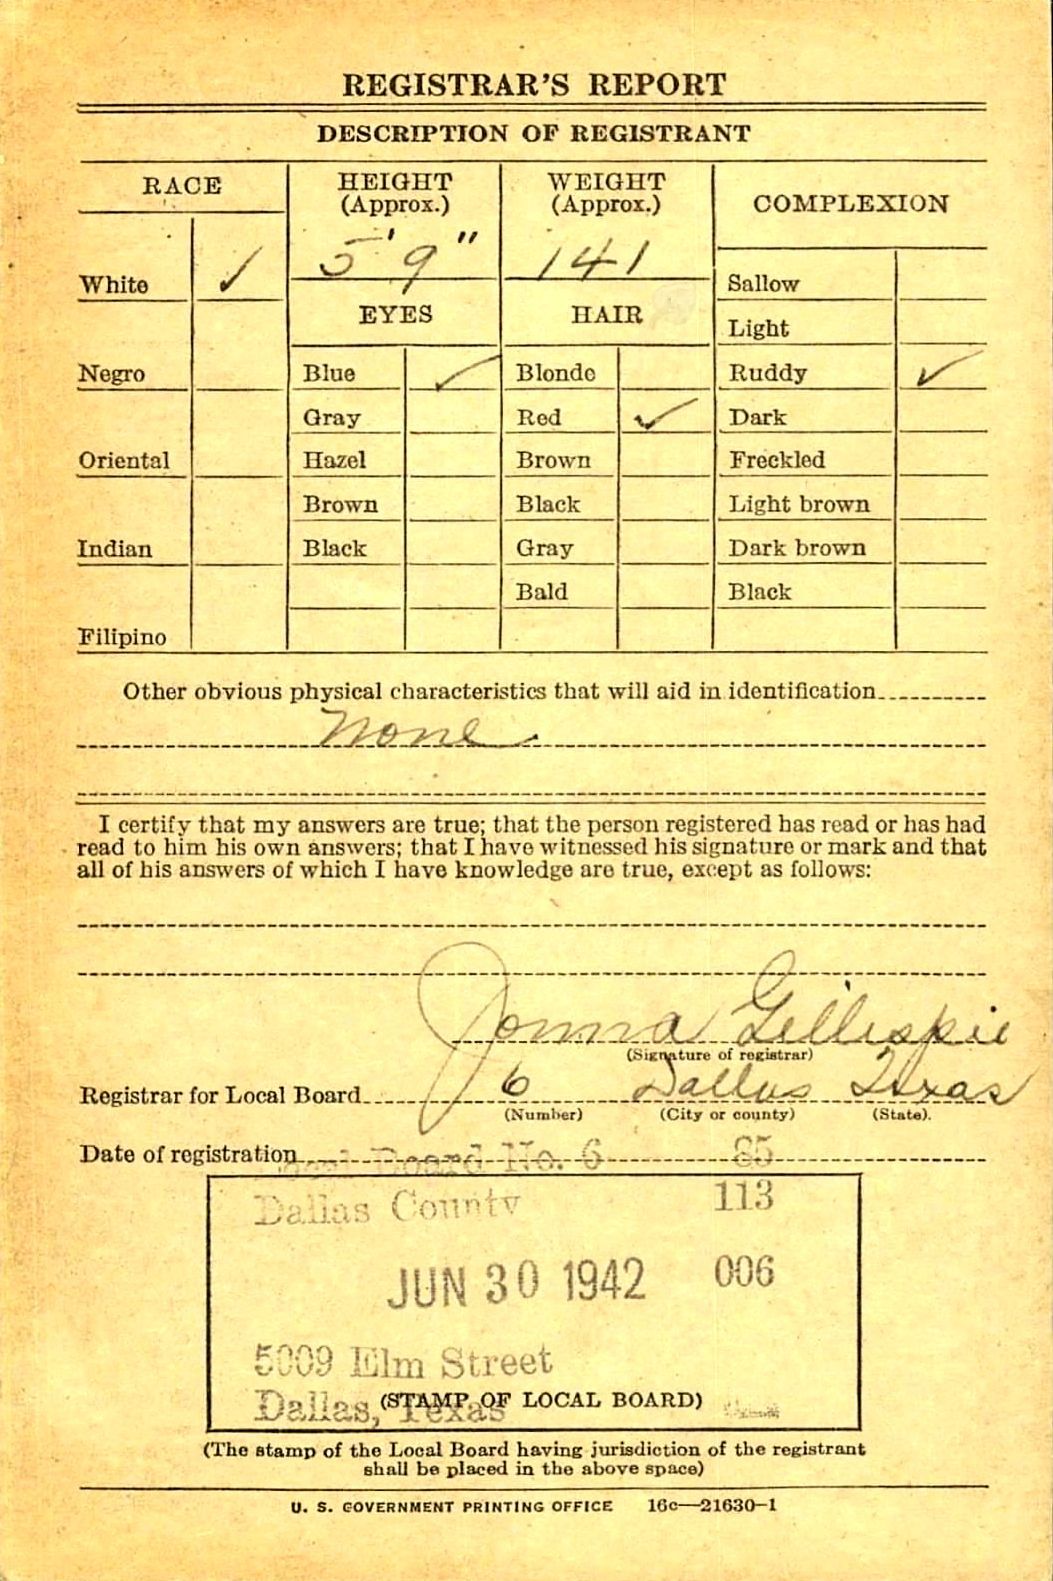 REGISTRAR'S REPORT
DESCRIPTION OF REGISTRANT
RACE
HEIGHT
(Approx.)
WEIGHT
(Approx.)
COMPLEXION
5' 9"
141
White ✓
EYES
HAIR
Sallow
Light
Negro
Blue ✓
Blonde
Ruddy ✓
Gray
Red ✓
Dark
Oriental
Hazel
Brown
Freckled
Brown
Black
Light brown
Indian
Black
Gray
Dark brown
Bald
Black
Filipino
Other obvious physical characteristics that will aid in identification
None
I certify that my answers are true; that the person registered has read or has had
read to him his own answers; that I have witnessed his signature or mark and that
all of his answers of which I have knowledge are true, except as follows:
Gillespie
(Signature of registrar)
Registrar for Local Board 6 Dallas Texas
(Number) (City or county) (State).
Date of registration
Local Board No. 6 85
Dallas County 113
JUN 30 1942 006
5009 Elm Street
Dallas, Texas
(STAMP OF LOCAL BOARD)
(The stamp of the Local Board having jurisdiction of the registrant
shall be placed in the above space)
U. S. GOVERNMENT PRINTING OFFICE 16c—21630-1